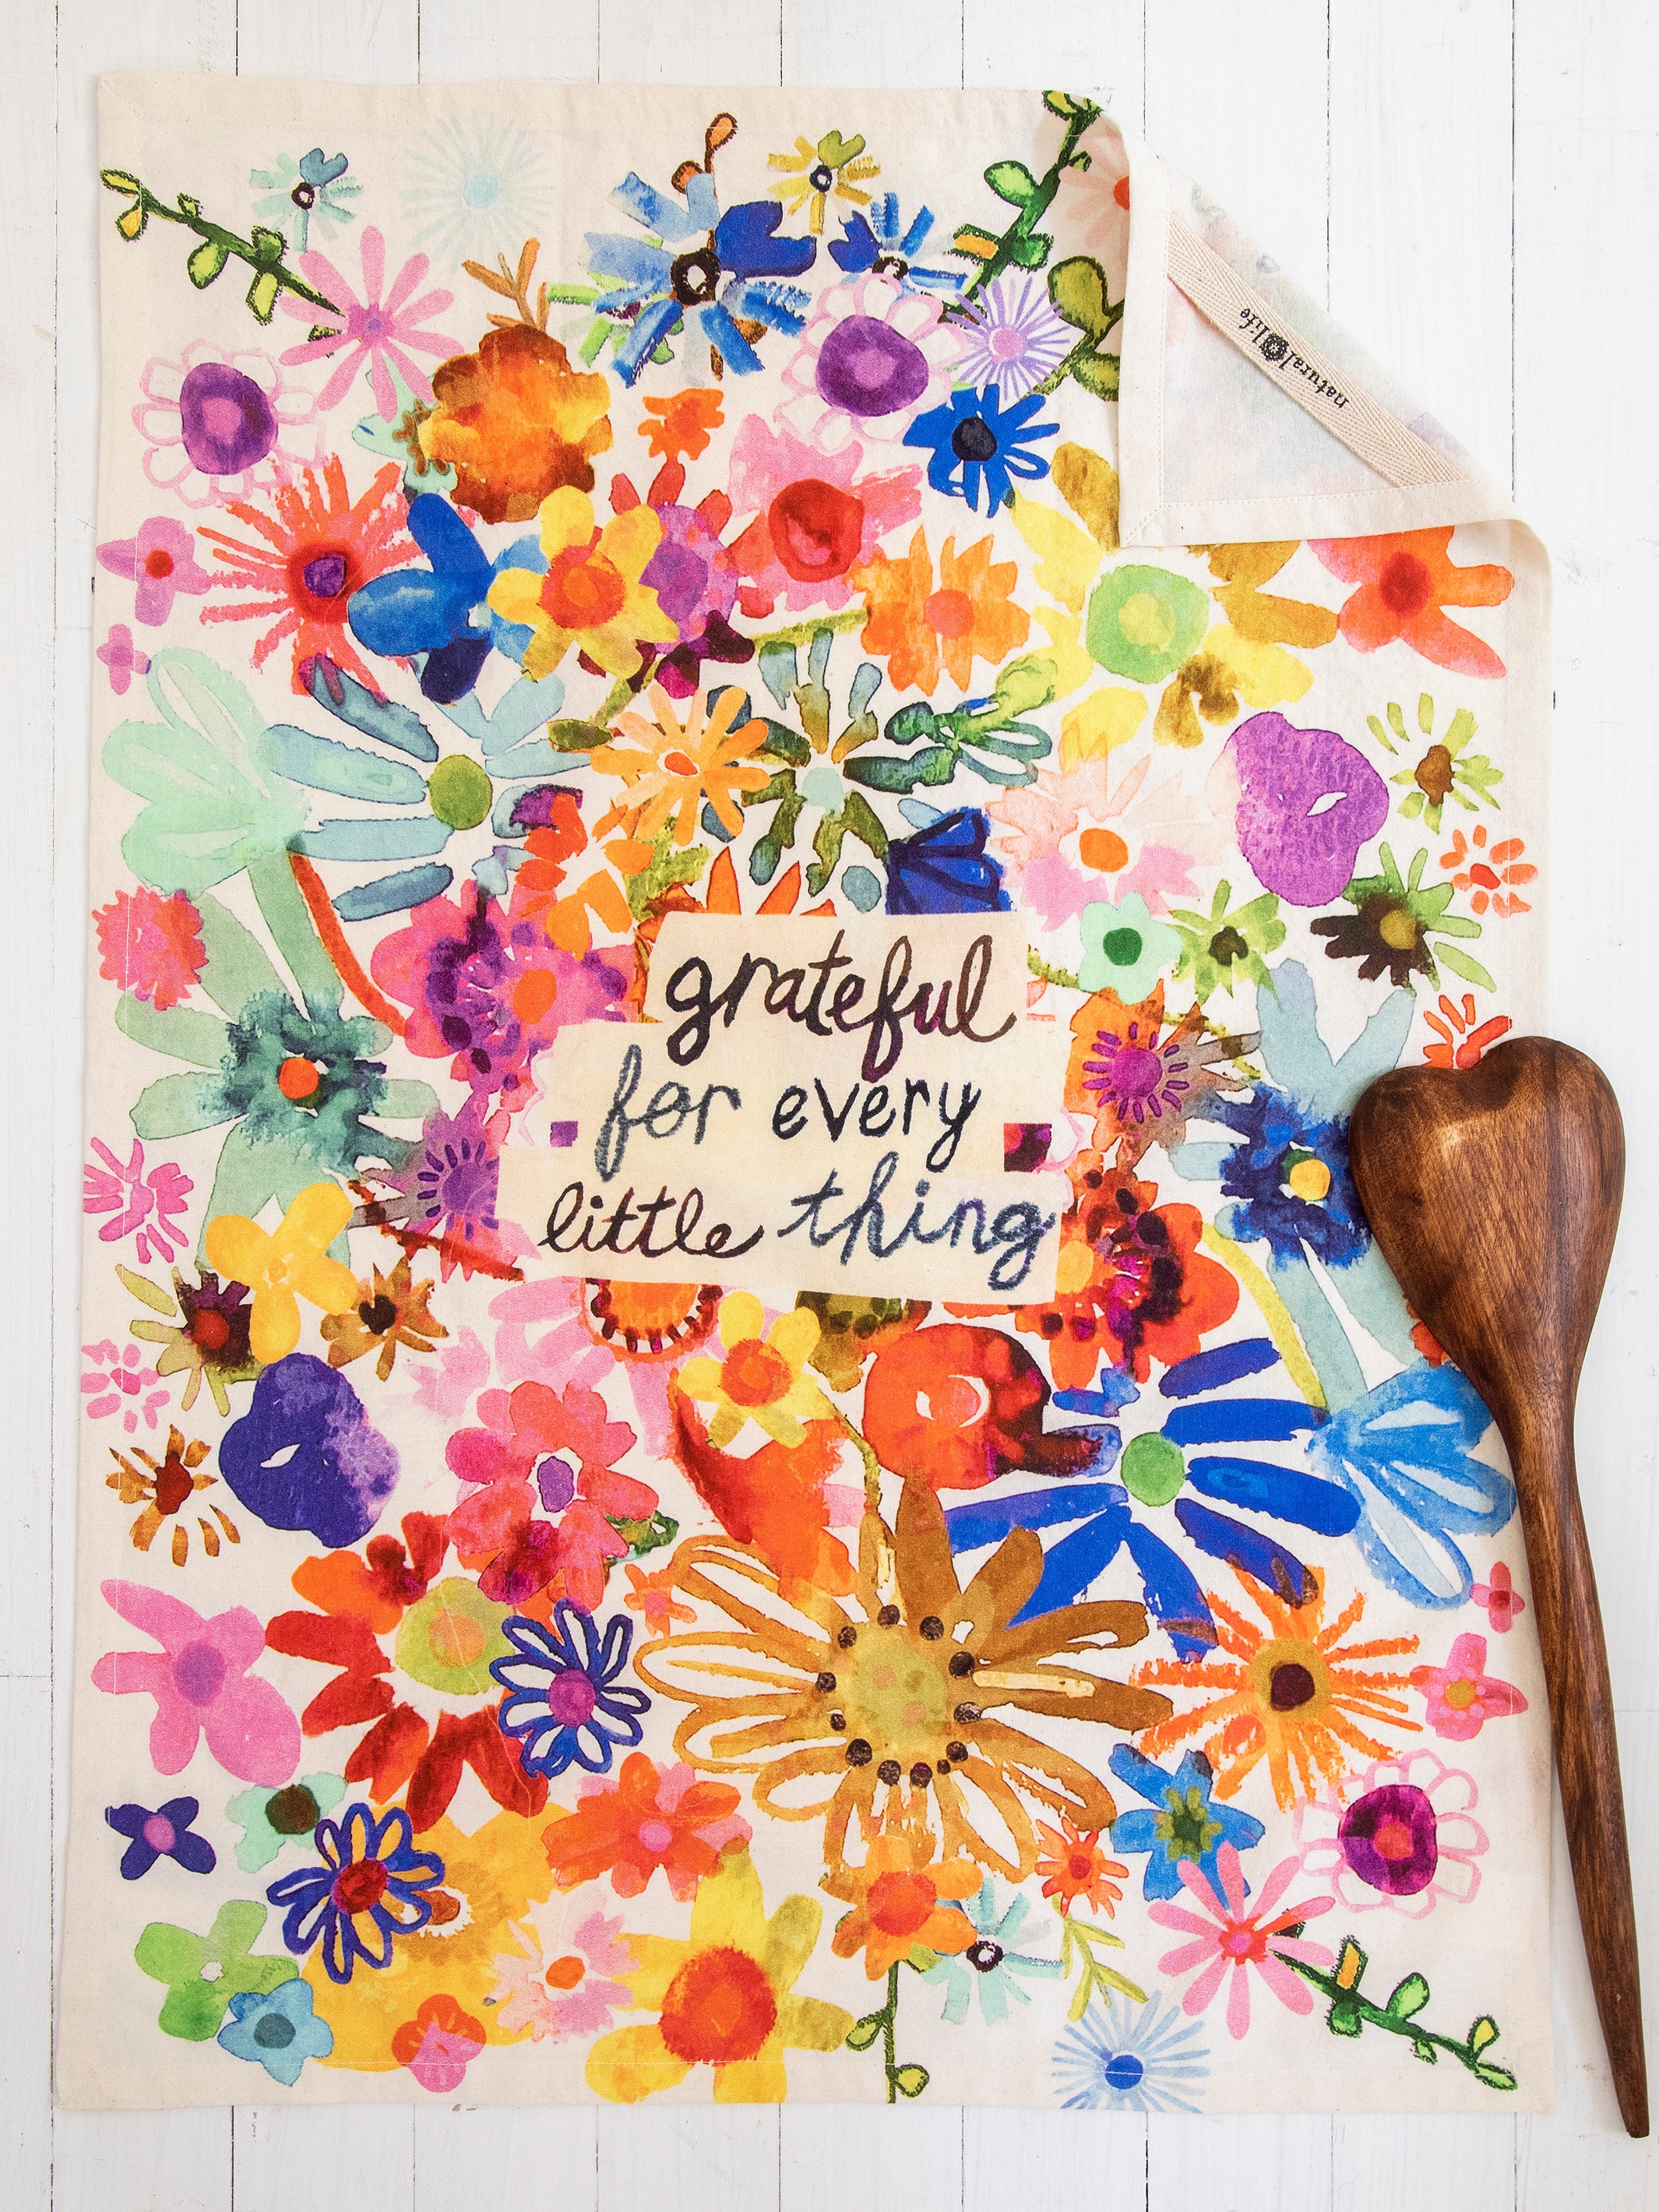 grateful
for every
little thing
natural life